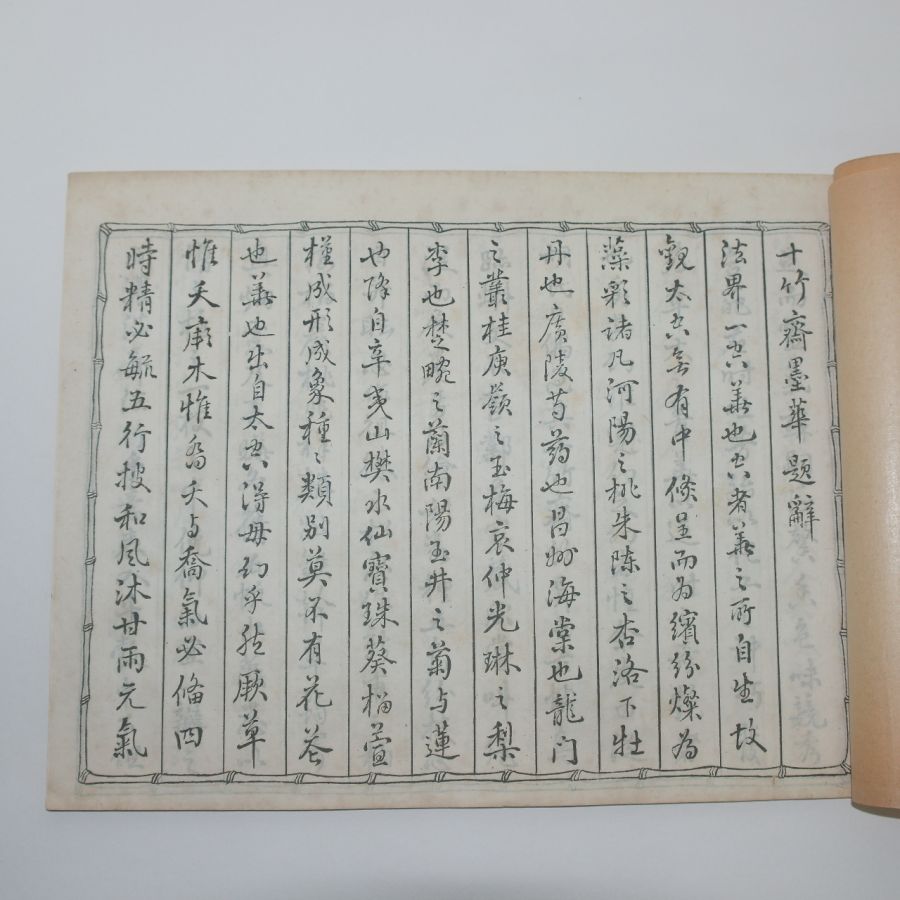 十竹齋墨華題辭
法界一空華也空者華之所自生故
觀太空無有中倏呈而為繽紛燦為
藻彩諸凡河陽之桃朱陳之杏洛下牡
丹也廣陵芍藥也昌州海棠也龍门
之叢桂庾嶺之玉梅哀仲光琳之梨
李也楚畹之蘭南陽玉井之菊与蓮
也降自辛夷山樊水仙寶珠葵榴萱
槿成形成象種之類別莫不有花花
也華也出自太空得毋幻乎然厥草
惟夭厥木惟喬夭与喬氣必備四
時精必毓五行披和风沐甘雨元氣